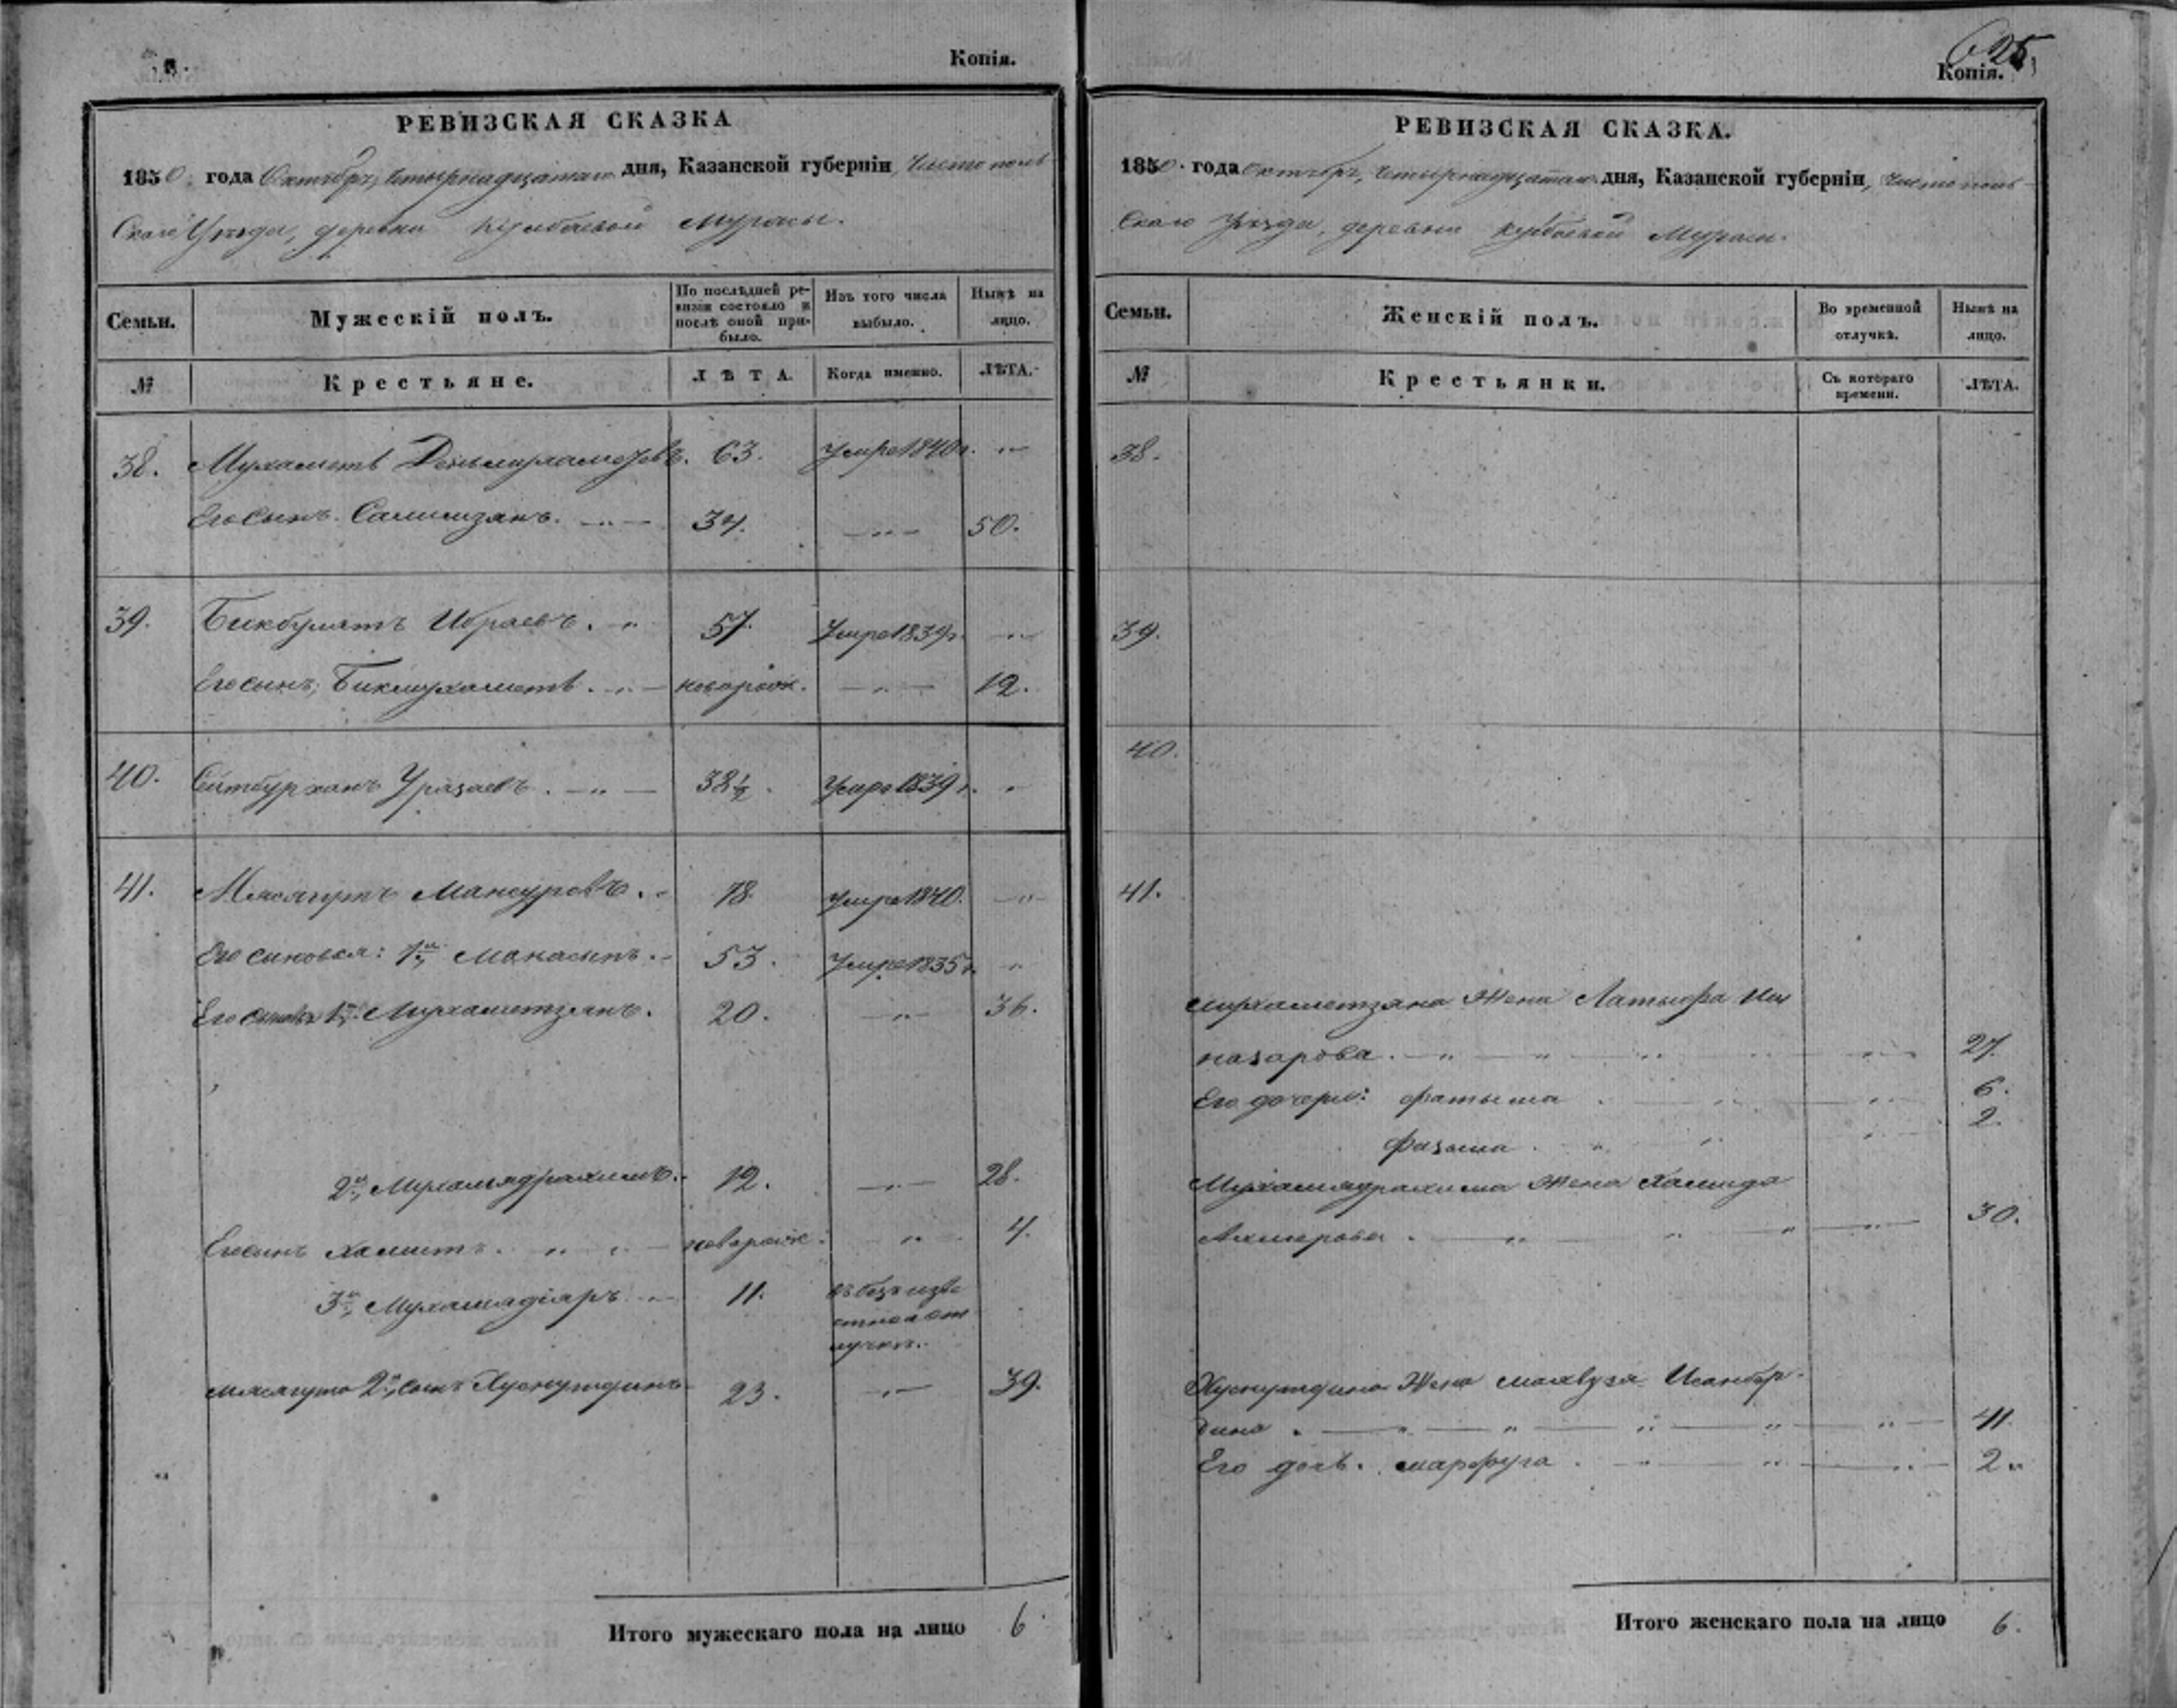 Копія.
РЕВИЗСКАЯ СКАЗКА
1850 года Октября, четырнадцатаго дня, Казанской губерніи Чистополь-
скаго Уѣзда, деревни Кулбаевой Мурасы.
Семьи. Мужескій полъ. По послѣдней ревизіи состояло и послѣ оной прибыло. Изъ того числа выбыло. Нынѣ на лицо.
№ Крестьяне. ЛѢТА. Когда именно. ЛѢТА.
38. Мухаметъ 63. Умре 1840 г. "
Его сынъ Салимзянъ. 34. " 50.
39. Бикбулатъ Ибраевъ. " 57. Умре 1839 г. "
Его сынъ, Бикмухаметъ. " новорож. " 12.
40. Сеитбурханъ Уразаевъ. " 38½. Умре 1839 г. "
41. Мясягутъ Мансуровъ. " 78. Умре 1840. "
Его сыновья: 1й, Манасыпъ. 53. Умре 1835 г. "
Его сыновья 1й, Мухаметзянъ. 20. " 36.
2й, Мухамядрахимъ. 12. " 28.
Его сынъ Хамитъ. " " новорож. " 4.
3й, Мухамядіяръ 11. въ безъизвѣ-
стной от
лучкѣ.
Мясягута 2й, сынъ Хуснутдинъ 23. " 39.
Итого мужескаго пола на лицо 6.
625
Копія.
РЕВИЗСКАЯ СКАЗКА.
1850 года Октября, четырнадцатаго дня, Казанской губерніи, Чистополь-
скаго Уѣзда, деревни Кулбаевой Мурасы.
Семьи. Женскій полъ. Во временной отлучкѣ. Нынѣ на лицо.
№ Крестьянки. Съ котораго времени. ЛѢТА.
38.
39.
40.
41.
Мухаметзяна Жена Латыфа Иш
назарова. " " " " " 27.
Его дочери: Фатыма " " 6.
Фазыма " " " 2.
Мухамядрахима Жена Хамида
" " " " 30.
Хуснутдина Жена Исанбер-
дина. " " " " " 41.
Его дочь. Марфуга. " " " 2"
Итого женскаго пола на лицо 6.